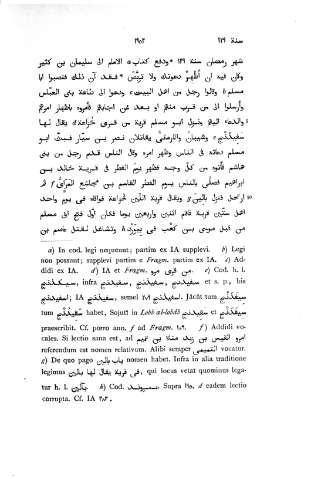 سنة ١٢٩ ١٩٥٢
شهر رمضان سنة ١٢٩ ودفع كتاب الامام الى سليمان بن كثير
وكان فيه ان أظهِر دعوتك ولا تربّص فقد آن ذلك فنصبوا ابا
مسلم وقالوا رجل من اهل البيت ودعوا الى طاعة بنى العبّاس
وأرسلوا الى من قرب منهم او بعد ممن اجابهم فأمروه باظهار امرهم
والدعاء اليهم ونزل ابو مسلم قرية من قرى خُزاعة يقال لها
سفيذنج وشيبان والكرمانى يقاتلان نصر بن سيّار فبثّ ابو
مسلم دعاته فى الناس وظهر امره وقال الناس قدم رجل من بنى
هاشم فأتوه من كلّ وجه فظهر يوم الفطر فى قرية خالد بن
ابراهيم فصلّى بالناس يوم الفطر القاسم بن مجاشع المرائى ثم
ارتحل فنزل بالين ويقال قرية اللين لخزاعة فوافاه فى يوم واحد
اهل ستّين قرية فاقام اثنين واربعين يوما فكان اوّل فتح ابى مسلم
من قبل موسى بن كعب فى بيورد وتشاغل بقتل عاصم بن
a) In cod. legi nequeunt; partim ex IA supplevi. b) Legi
non possunt; supplevi partim e Fragm. partim ex IA. c) Ad-
didi ex IA. d) IA et Fragm. من قرى مرو. e) Cod. h. l.
سيكدنج, infra سفيدنج, سفيذنج et s. p., bis
سفيدنج; IA سفيدنج, semel ٢٠٨ اسفيدنج. Jâcût tum سيفذنج
tum سفيذنج habet, Sojutî in Lobb al-lobâb سفيدنج et سفيذنج
praescribit. Cf. porro ann. f ad Fragm. ١٨٩. f) Addidi vo-
cales. Si lectio sana est, ad امرو القيس بن زيد مناة بن تميم
referendum est nomen relativum. Alibi semper التميمى vocatur.
g) De quo pago بالين nomen habet. Infra in alia traditione
legimus فى قرية يقال لها بالين, qui locus vetat quominus lega-
tur h. l. باللين. h) Cod. سورد. Supra d eadem lectio
corrupta. Cf. IA ٢٨٣.